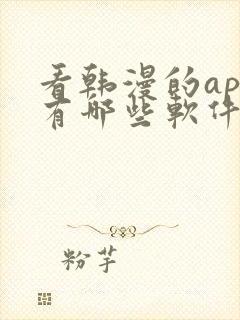 看韩漫的ap
有哪些软件
粉芋